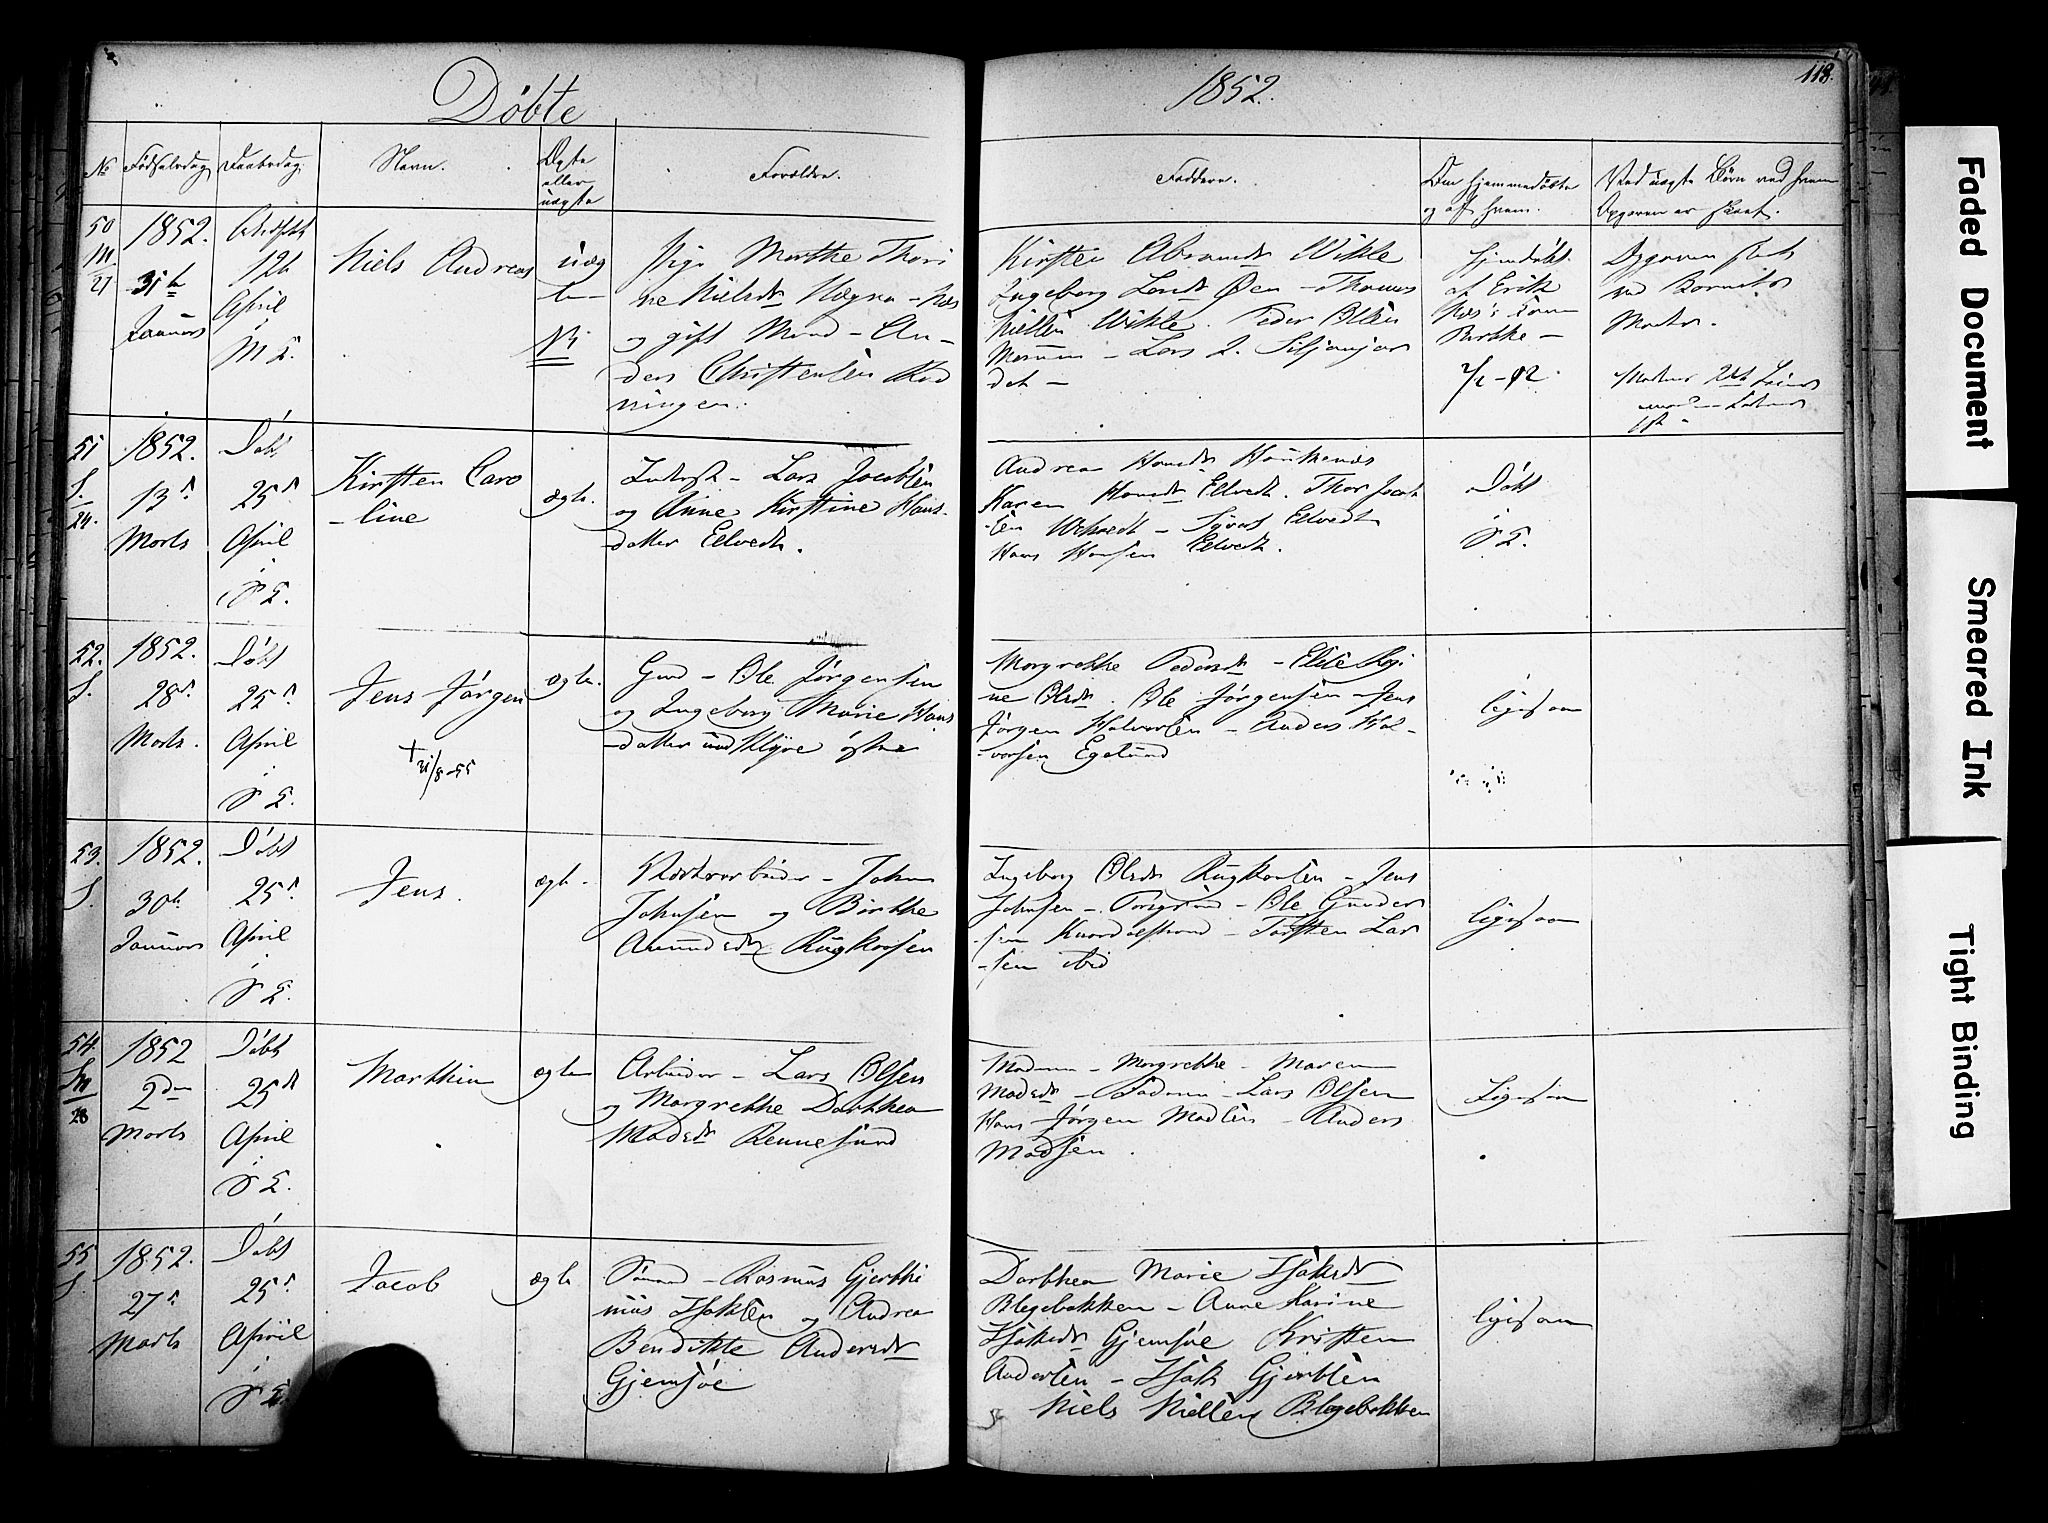 Døbte
1852.
118.
No
Fødselsdag
Daabsdag
Navn.
Ægte
eller
uægte
Forældre.
Faddere.
Om hjemmedøbte
og af hvem.
Ved uægte Børn ved hvem
Opgaven er skeet.
50
M
21
1852.
31te
Januar
12te
April
i
M E.
Niels Andreas
uæg
te
NB
Pige Marthe Thori
ne Nielsdr
og gift Mand - An-
ders Christensen
ningen.
Kirsten
Ingeborg Larsdr Øen - Thomas
Nielsen Wihle. Peder Olsen
Lars L. Siljanjor
det -
Hjemdøbt
af Erik
Birthe -
Opgaven skeet
ved Barnets
Moder.
51
S.
24.
1852.
13de
Marts
Døbt
25de
April
i
S E.
Kirsten Caro
-line
ægte.
Inderst - Lars Jacobsen
og Anne Kirstine Hans-
-datter Eelvedt.
Andrea Hansdr
Karen Hansdr Eelvedt. Thor Jacob
-sen - Sivert Eelvedt
Hans Hansen Eelvedt.
Døbt
i
S E.
52.
S.
1852.
28de
Marts.
Døbt
25de
April
i
S E.
Jens Jørgen
+ 21/8-55
ægte.
Gmd - Ole Jørgensen
og Ingeborg Marie Hans
-datter und Klyve østre
Margrethe Pedersdr - Elise Regi
ne Olsdr. Ole Jørgensen - Jens
Jørgen Halvorsen - Anders Hal-
-vorsen Egelund
ligesaa
53.
S.
1852.
30te
Januar
Døbt
25de
April
i
S E.
Jens.
ægte.
John
Johnsen og Birthe
Amundsdr Rugkaasen
Ingeborg Olsdr Rugkaasen - Jens
Johnsen - Porsgrund - Ole Gunder
-sen Knardalstrand - Torsten Lar
-sen ibid
ligesaa
54.
28
1852
2den
Marts
Døbt
25de
April
i
S E.
Marthin
ægte
Arbeider - Lars Olsen
og Margrethe Dorthea
Madsdr Rennesund
Madam - Margrethe - Maren
Madsdr - - Lars Olsen
Hans Jørgen Madsen - Anders
Madsen.
Ligesaa
55
S.
1852.
27de
Marts
Døbt
25de
April
i
S E.
Jacob
ægte
Sømand - Rasmus Gjerthi
nius Isaksen og Andrea
Bendikte Andersdr
Gjemsøe
Dorthea Marie Isaksdr
Blegebakken - Anne Karine
Isaksdr Gjemsøe Kristen
Andersen - Isak Gjertsen
Niels Nielsen Blegebakken
ligesaa
Faded Document
Smeared Ink
Tight Binding